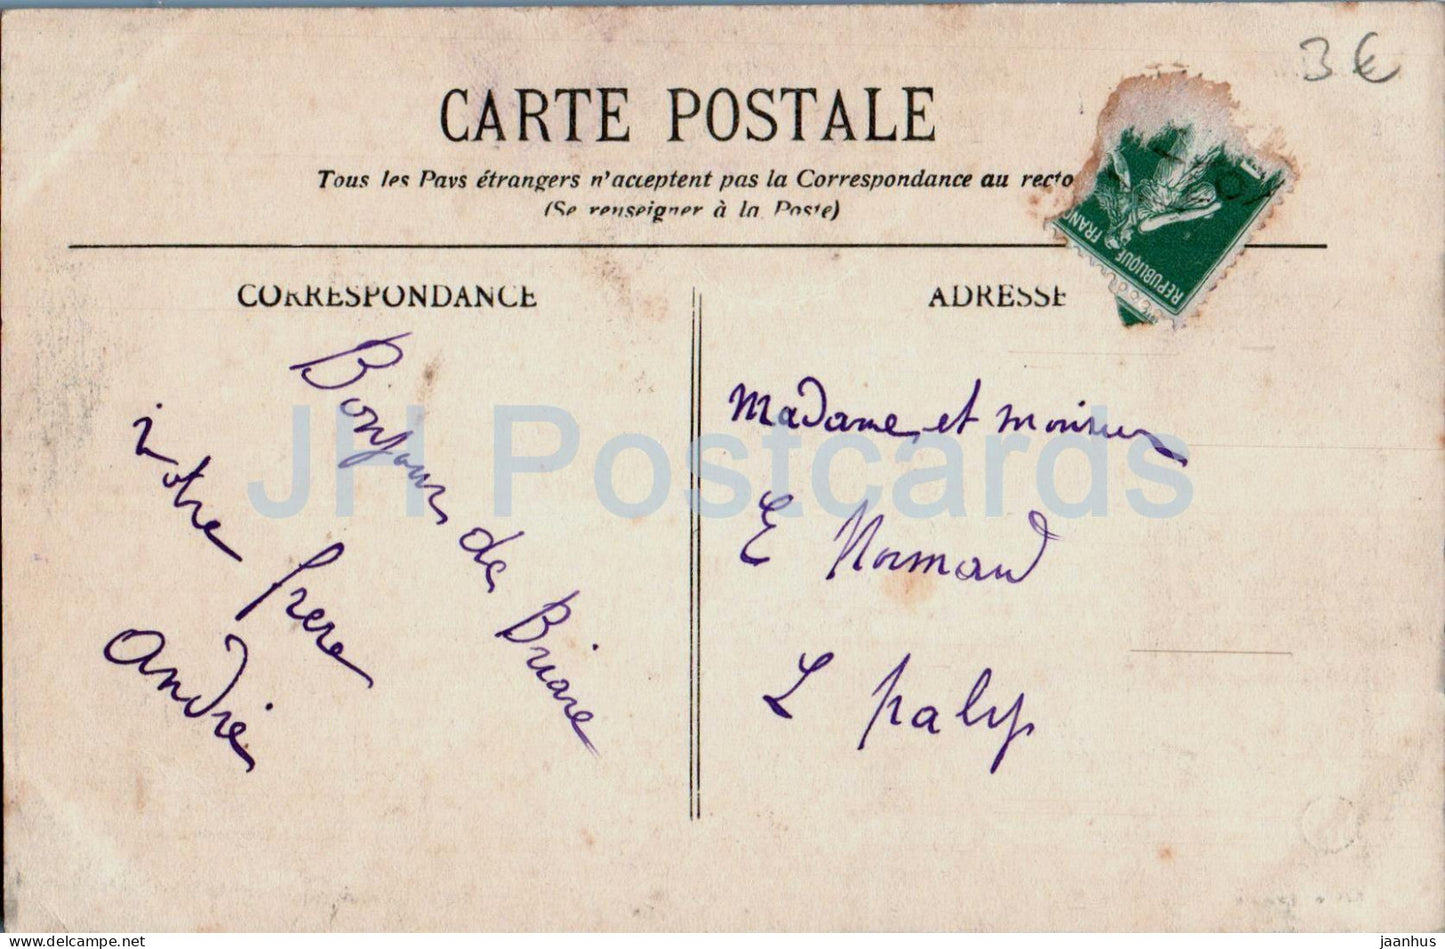 3 €
CARTE POSTALE
Tous les Pays étrangers n'acceptent pas la Correspondance au recto
(Se renseigner à la Poste)
REPUBLIQUE FRANC
CORRESPONDANCE
ADRESSE
Bonjour de Briare
votre frere
André
Madame et Monsieur
E Normand
L paly
JH Postcards
delcampe.net
jaanhus